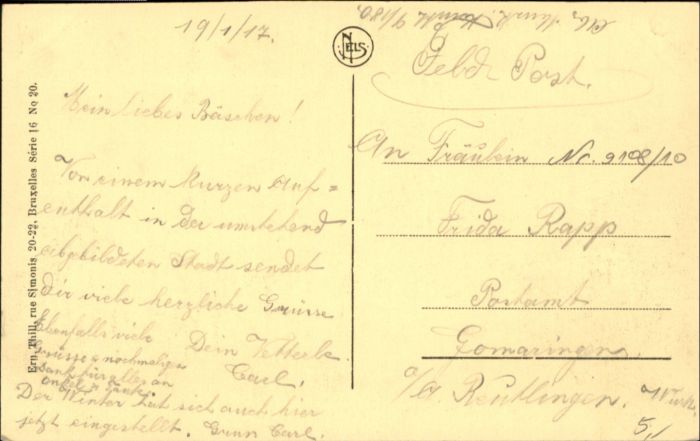 19/1/17.
Mein liebes Bäschen!
Von einem kurzen Auf=
enthalt in der umstehend
abgebildeten Stadt sendet
dir viele herzliche Grüsse
Dein Vetterle
Carl.
Ebenfalls viele
Grüsse u nochmaligen
Dank für alles an
Onkel u Tante.
Der Winter hat sich auch hier
jetzt eingestellt. Gruss Carl.
Ern. Thill, rue Simonis, 20-22, Bruxelles Série 16 No 20.
NELS
Feld Post.
An Fräulein Nr. 9108/10
Frida Rapp
Postamt
Gomaringen
O/A. Reutlingen.
5.